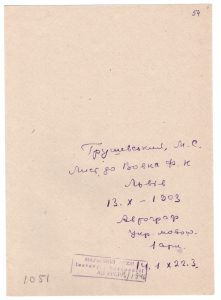 54
Грушевський, М.С.
Лист до Вовка Ф. К
Львів
13. X - 1903
Автограф
Укр. мовою.
1 арк.
1 х 22.3.
1051